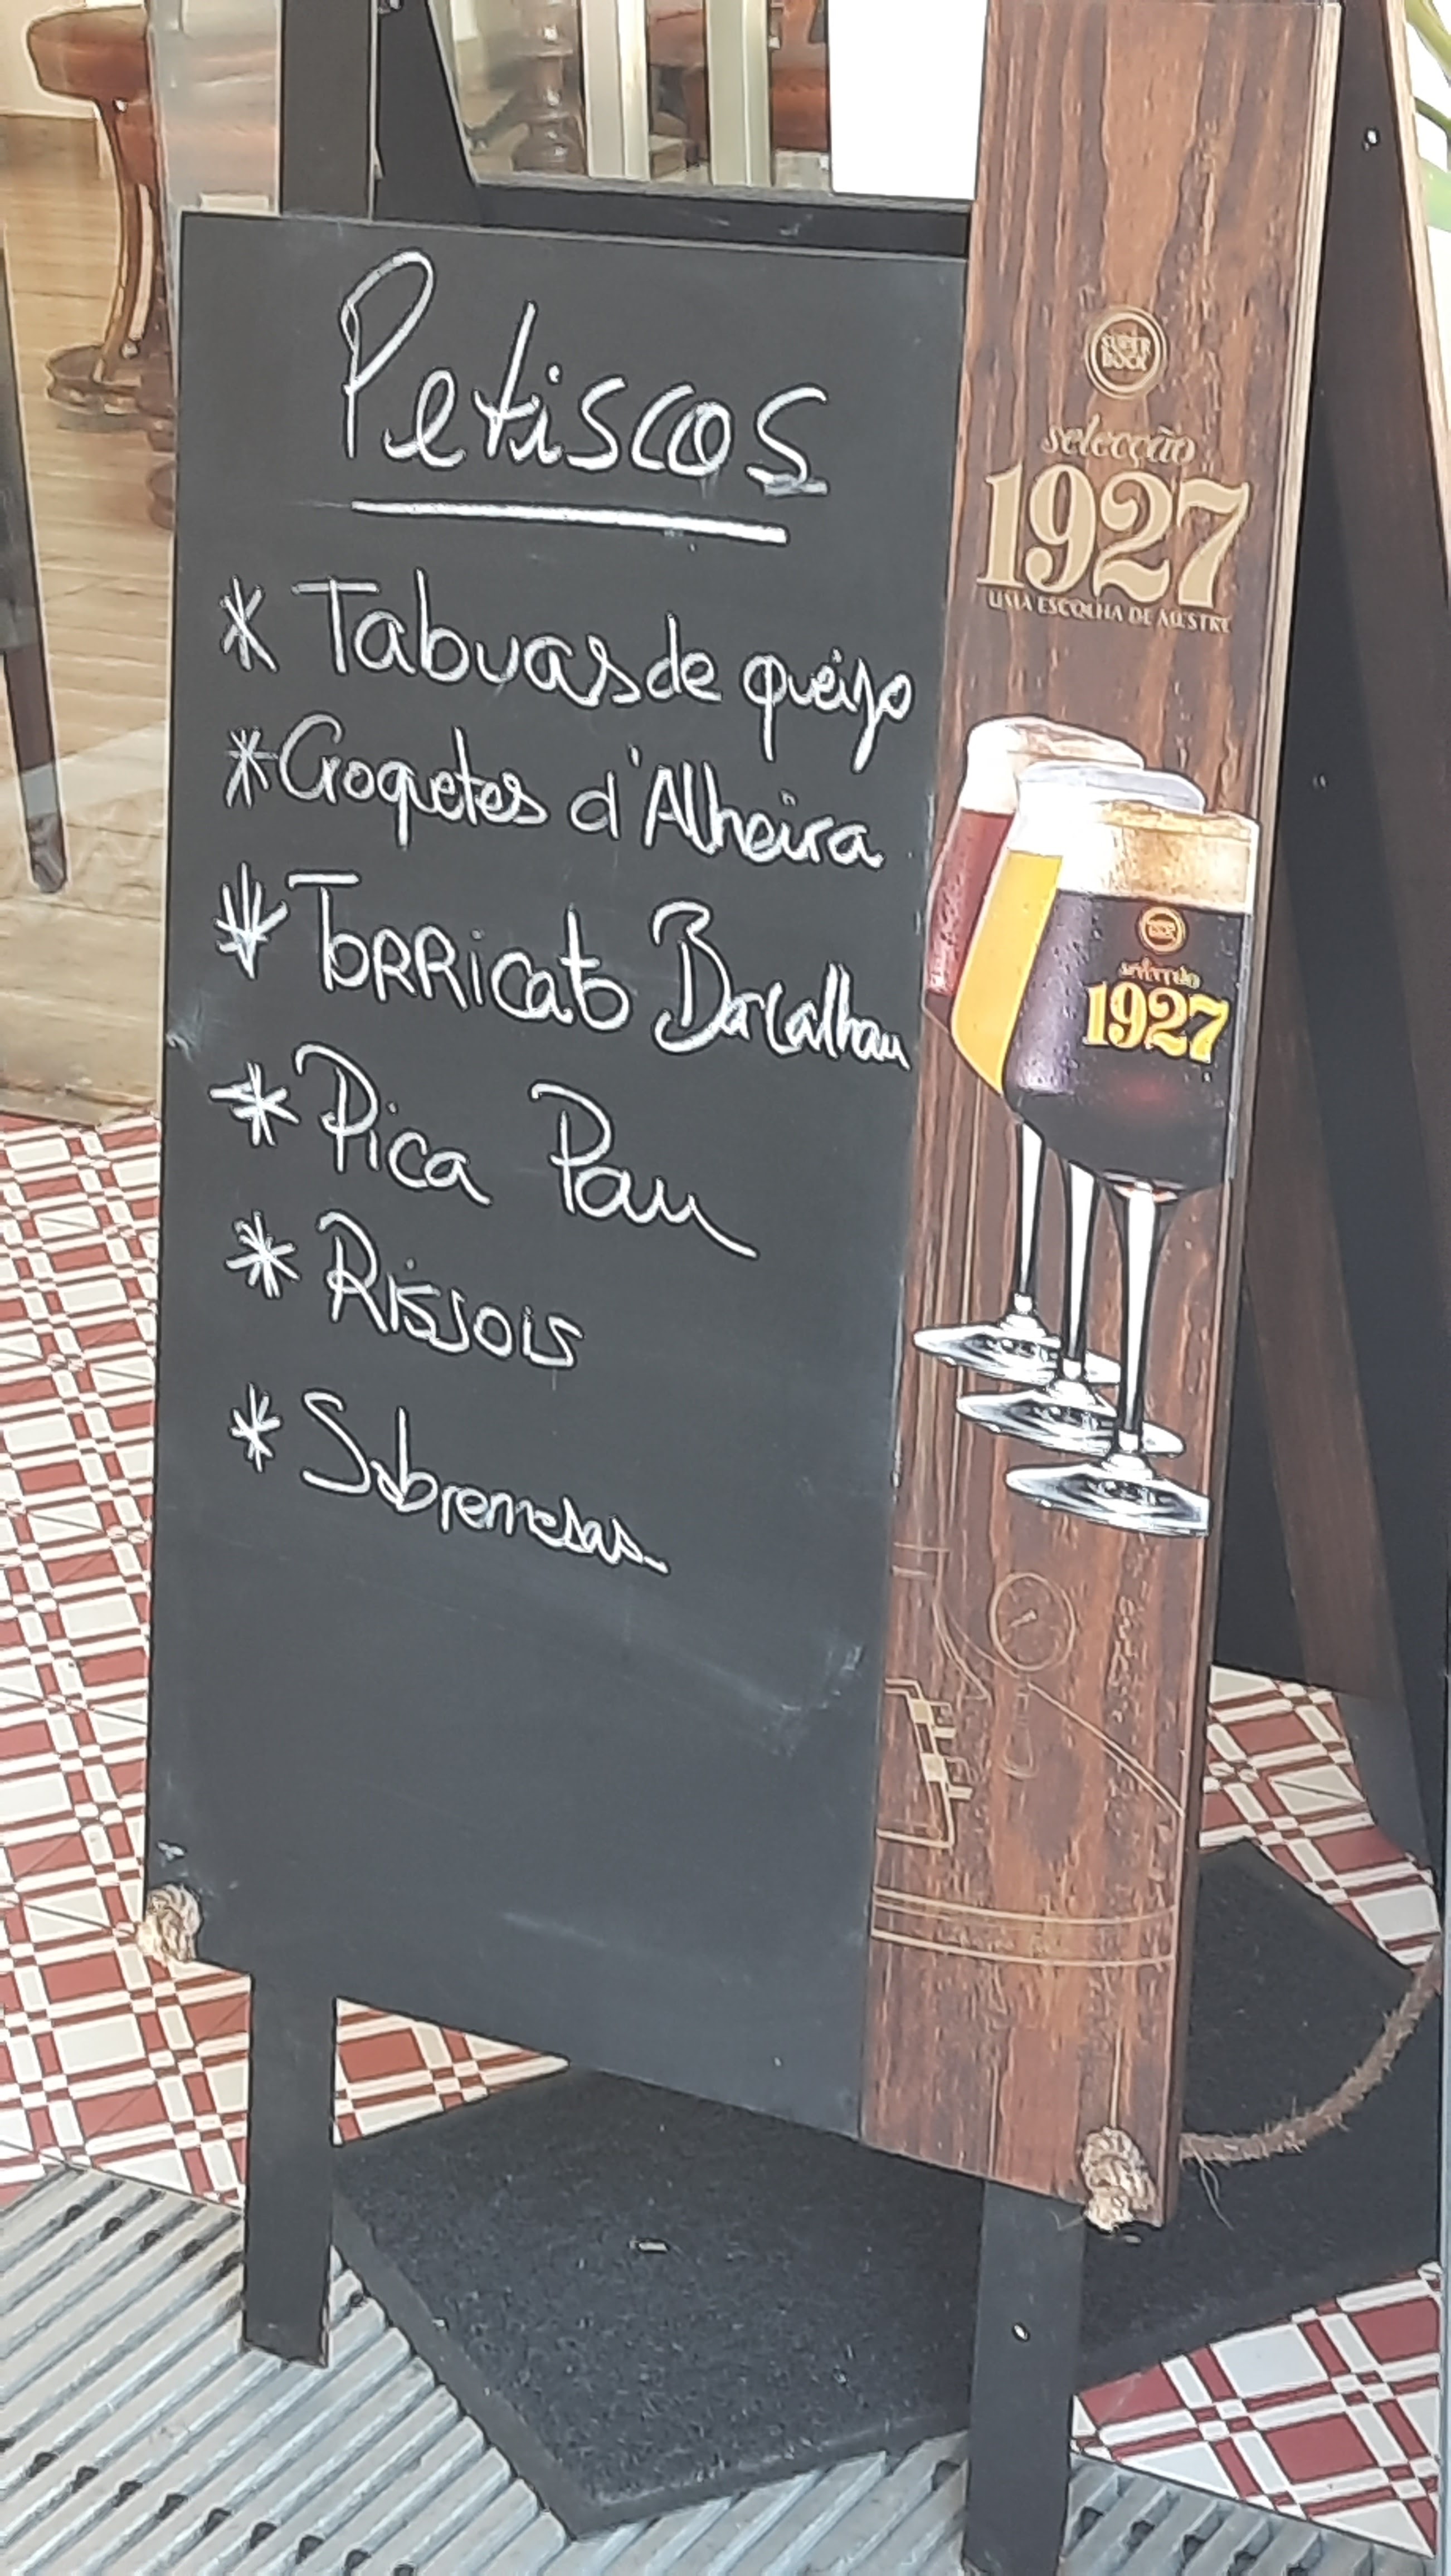 Petiscos
* Tabuas de queijo
* Croquetes d'Alheira
* Torricato Bacalhau
* Pica Pau
* Rissois
* Sobremesas
SUPER BOCK
selecção
1927
UMA ESCOLHA DE MESTRE
selecção
1927